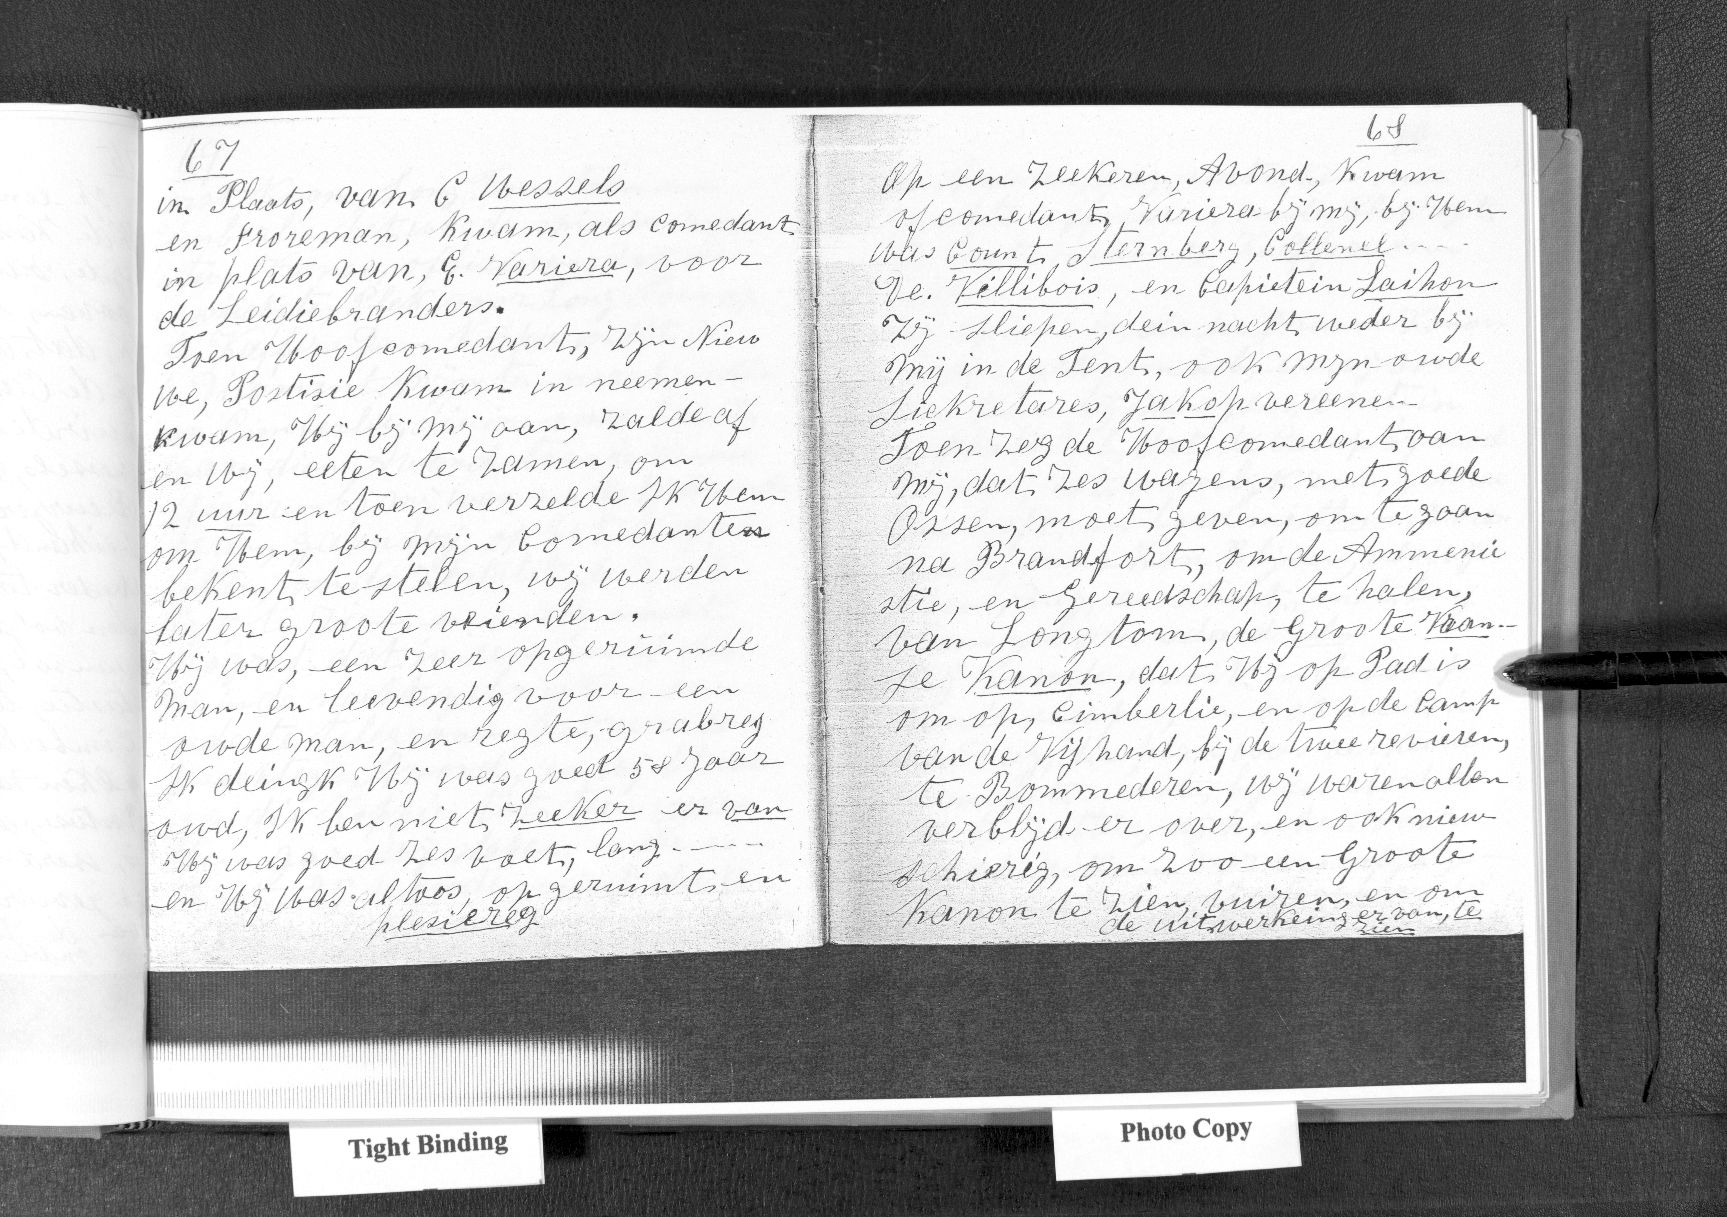 67
in Plaats, van C Wessels
en Froreman, Kwam, als comedant
in plats van, E. Variera, voor
de Leidiebranders.
Toen Hoofcomedant, Zijn Niew
we, Postisie Kwam in neemen-
Kwam, Hij bij mij aan, zalde af
en Wij, eeten te Zamen, om
12 uur en toen verzelde Ik Hem
om Hem, bij mijn Comedanten
bekent te stelen, wij werden
later groote vrienden.
Hij was, een zeer opgeruimde
man, en leevendig voor een
owde man, en regte, grabreg
Ik deingk Hij was goed 58 Jaar
owd, Ik ben niet, Zeeker er van
Hij was goed Zes voet, lang.----
en Hij was altoos, op geruimt, en
plesiereg
68
Op een Zeekeren, Avond, Kwam
ofcomedant, Variera bij mij, bij Hem
was Count, Sternberg, Collenel....
De. Villibois, en Capietein Laihon
Zij sliepen, dein nacht, weder bij
mij in de Tent, ook mijn owde
Siekretares, Jakop vereenen
Toen Zeg de Hoofcomedant, aan
mij, dat, Zes wagens, met, goede
Ossen, moet, geven, om te gaan
na Brandfort, om de Ammenie
stie, en Gereedschap, te halen,
van Longtom, de Groote Kran-
se Kanon, dat, Hij op Pad is
om op, Cimberlie, en op de Camp
van de Vijhand, bij de twee revieren,
te Bommederen, wij waren allen
verblijd er over, en ook niew
schiereg, om Zoo een Groote
Kanon te Zien, vuiren, en om
de uitwerkeing er van, te
zien
Tight Binding
Photo Copy